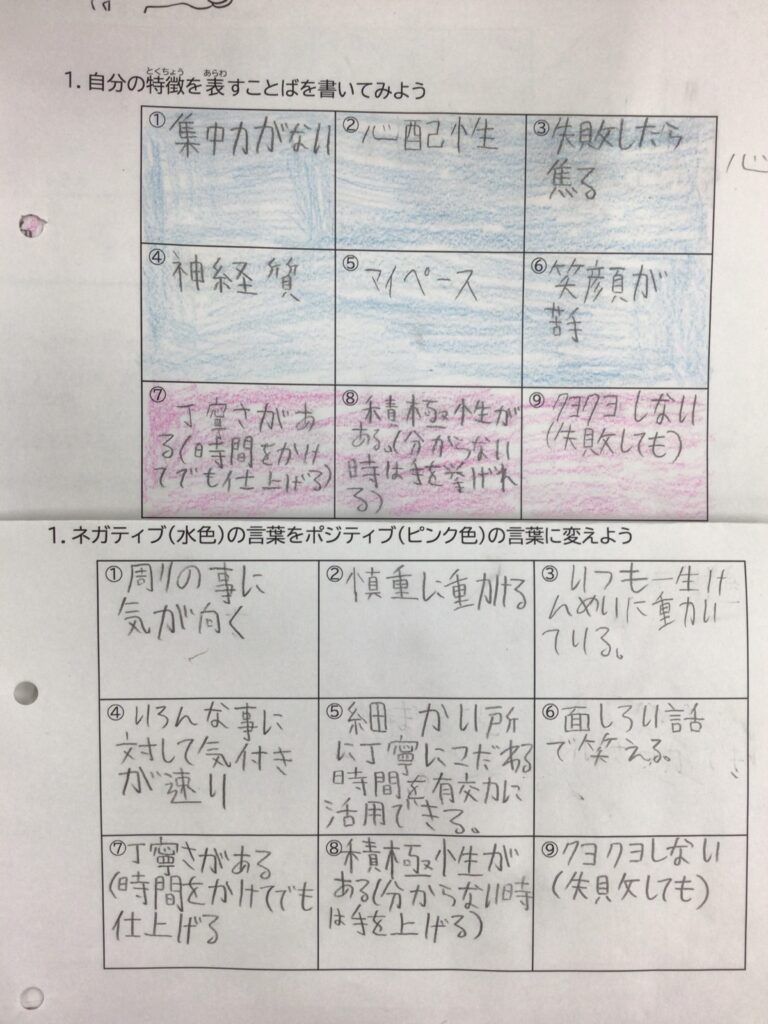 1. 自分の特徴を表すことばを書いてみよう
とくちょう あらわ
① 集中力がない
② 心配性
③ 失敗したら
焦る
④ 神経質
⑤ マイペース
⑥ 笑顔が
苦手
⑦ 丁寧さがあ
る(時間をかけ
てでも仕上げる)
⑧ 積極性が
ある。(分からない
時は手を挙げれ
る)
⑨ クヨクヨしない
(失敗しても)
心
1. ネガティブ(水色)の言葉をポジティブ(ピンク色)の言葉に変えよう
① 周りの事に
気が向く
② 慎重に動ける
③ いつも一生け
んめいに動い
ている。
④ いろんな事に
対して気付き
が速り
⑤ 細かい所
に丁寧にこだわる
時間を有効に
活用できる。
⑥ 面しろい話
で笑える。
⑦ 丁寧さがある
(時間をかけてでも
仕上げる
⑧ 積極性が
ある(分からない時
は手を上げる)
⑨ クヨクヨしない
(失敗しても)